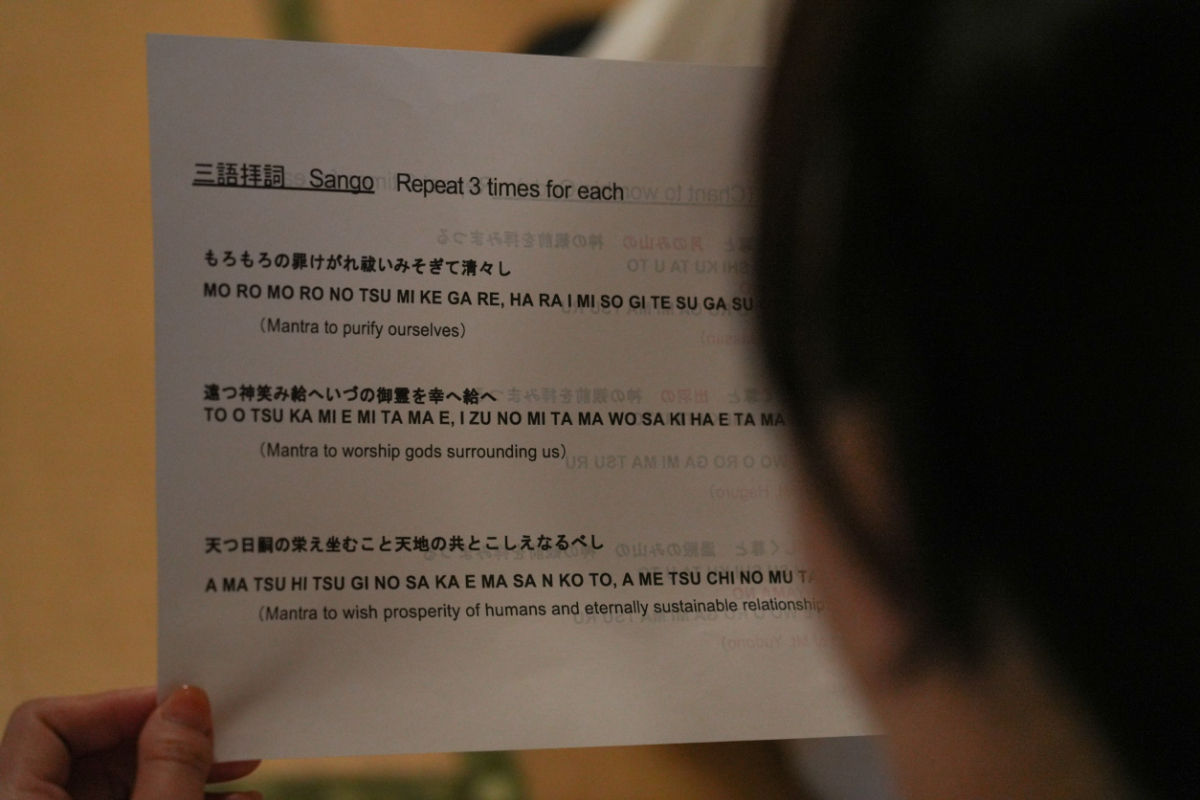 三語拝詞 Sango Repeat 3 times for each
もろもろの罪けがれ祓いみそぎて清々し
MO RO MO RO NO TSU MI KE GA RE, HA RA I MI SO GI TE SU GA SU
(Mantra to purify ourselves)
遠つ神笑み給へいづの御霊を幸へ給へ
TO O TSU KA MI E MI TA MA E, I ZU NO MI TA MA WO SA KI HA E TA MA
(Mantra to worship gods surrounding us)
天つ日嗣の栄え坐むこと天地の共とこしえなるべし
A MA TSU HI TSU GI NO SA KA E MA SA N KO TO, A ME TSU CHI NO MU TA
(Mantra to wish prosperity of humans and eternally sustainable relationship